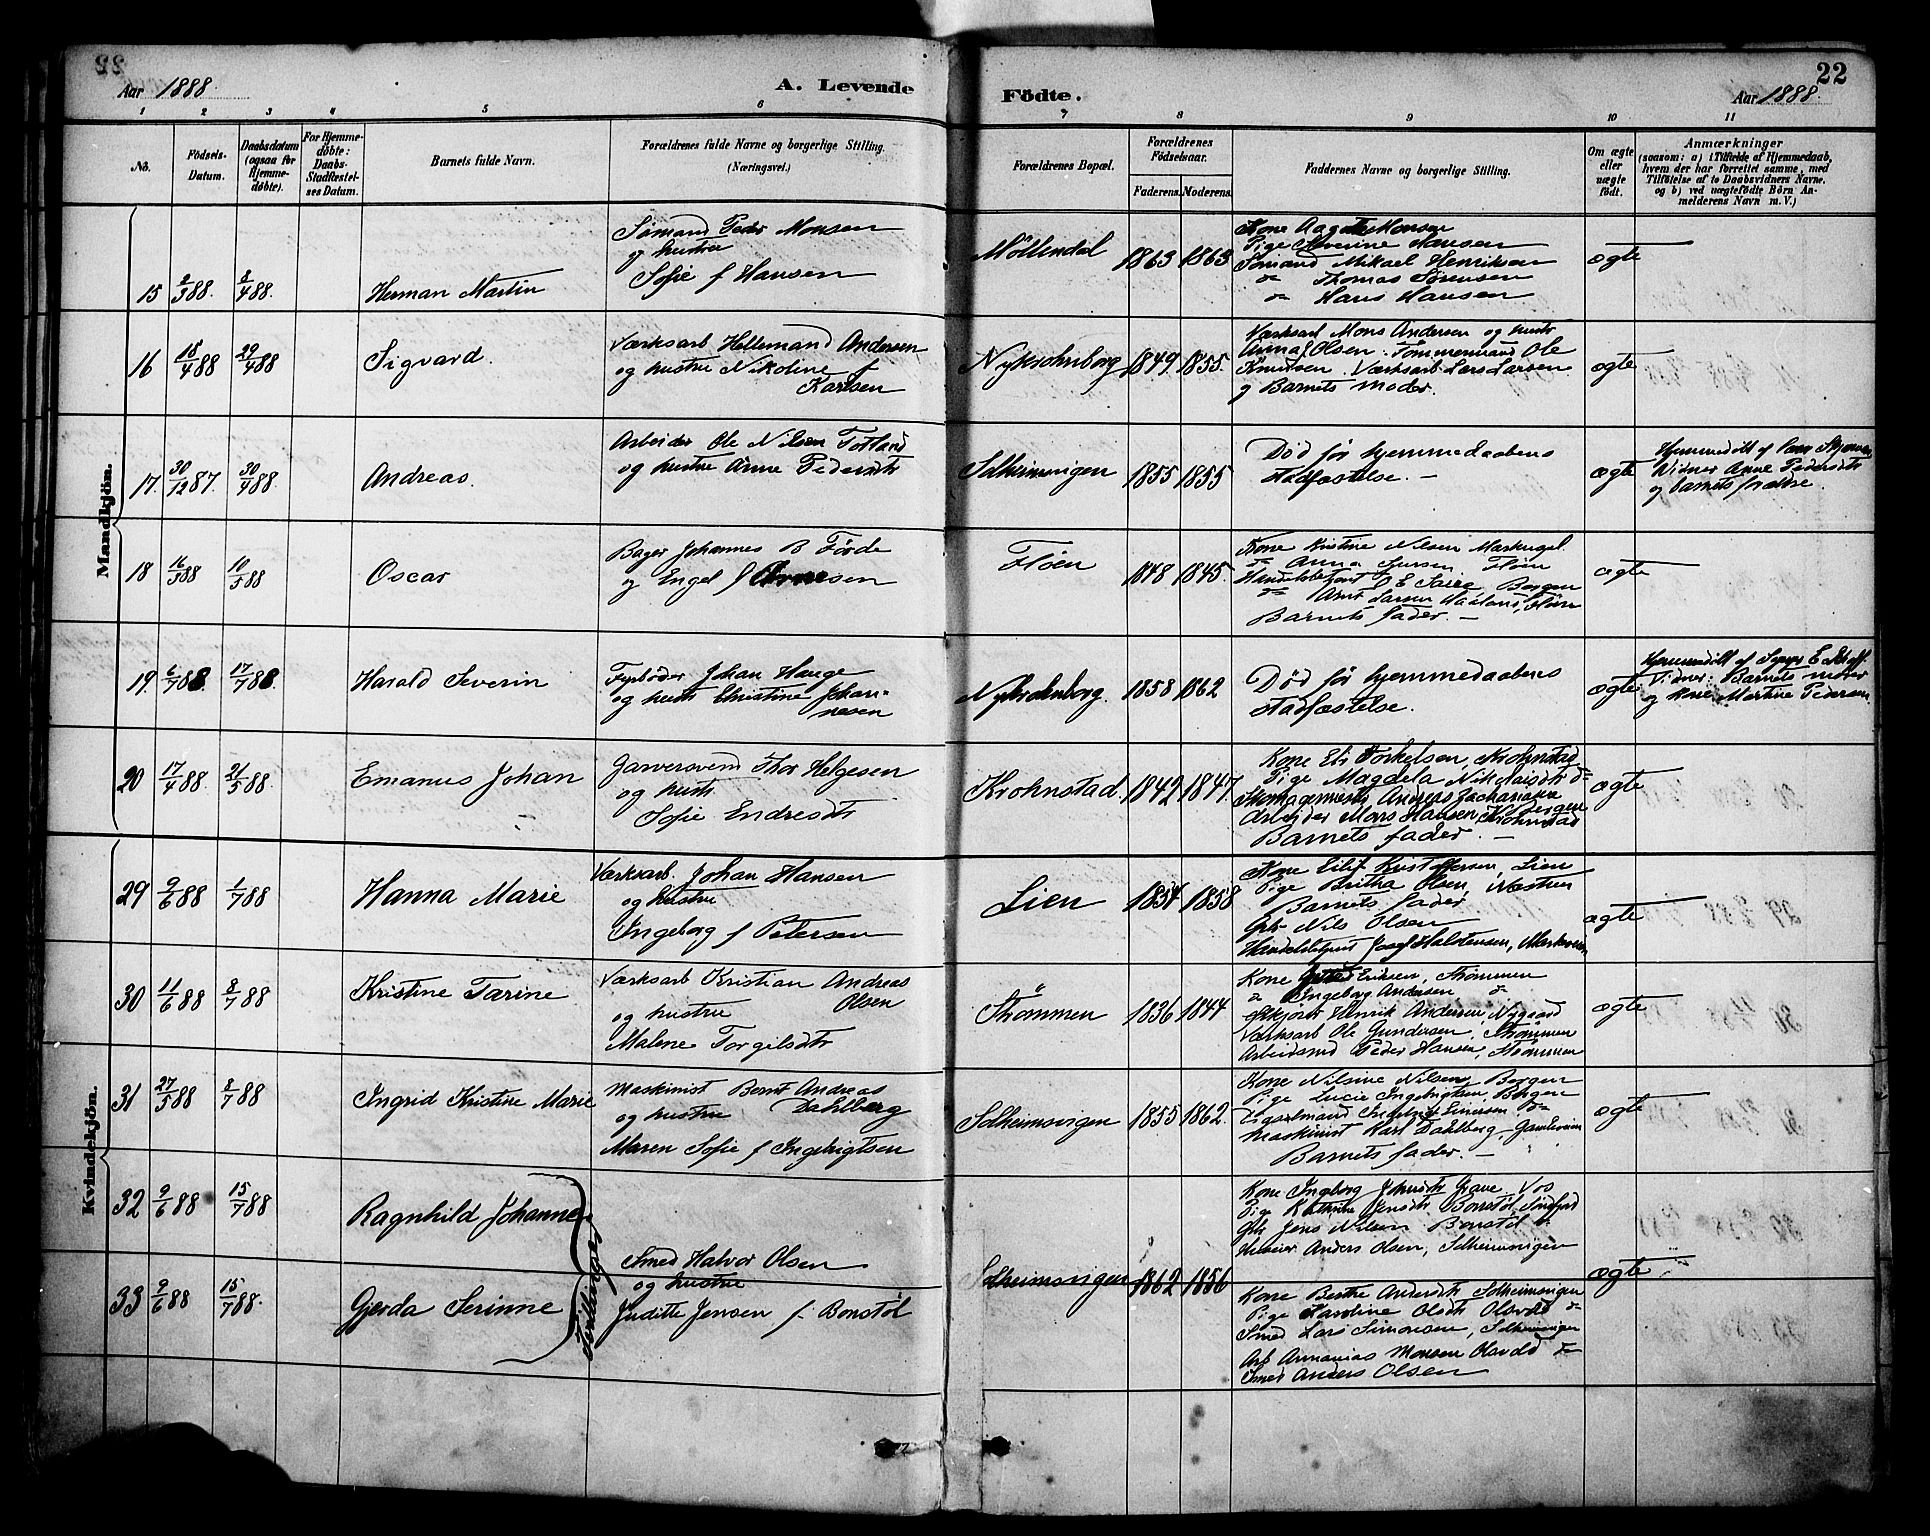 22
Aar 1888.
A. Levende
Födte.
Aar 1888.
1 2 3 4 5 6 7 8 9 10 11
No.
Födsels-
Datum.
Daabsdatum
(ogsaa for
Hjemme-
døbte).
For Hjemme-
døbte:
Daabs-
Stadfæstel-
ses Datum.
Barnets fulde Navn.
Forældrenes fulde Navne og borgerlige Stilling.
(Næringsvei.)
Forældrenes Bopæl.
Forældrenes
Födselsaar.
Faderens.
Moderens.
Faddernes Navne og borgerlige Stilling.
Om ægte
eller
uægte
født.
Anmærkninger
(saasom: a) i Tilfælde af Hjemmedaab,
hvem der har forrettet samme, med
Tilføielse af to Daabsvidners Navne,
og b) ved uægtefödte Börn An-
melderens Navn m. V.)
Mandkjön.
15 2/3 88. 8/4 88. Herman Martin
Sømand Peder Monsen
og hustru
Sofie f Hansen
Möllendal 1863 1863
Kone Monsen
Pige Severine Hansen
Sømand Mikael Henriksen
do Thomas Sørensen
do Hans Hansen
ægte
16 18/4 88 29/4 88 Sigvard.
Værksarb Hellemand Andersen
og hustru Nikoline f
Karlsen
Nykrohnborg 1849 1855.
Værksarb Mons Andersen og hustr
Anna f Olsen. Tømmermand Ole
Knudsen. Værksarb Lars Larsen
og Barnets moder.
ægte
17. 30/12 87. 30/4 88. Andreas.
Arbeider Ole Nilsen Totland
og hustru Anne Pedersdtr
Solheimsvigen 1855 1855
Død før hjemmedaabens
stadfæstelse. —
ægte
Hjemmedøbt af
Vidner Anne Pedersdtr
og barnets forældre.
18 16/3 88 10/5 88 Oscar
Bager Johannes B Førde
og Engel f Arnesen
Fløen 1848 1845.
Kone Kristine Nilsen
do Anna Fløen
Bergen
do Arnt Larsen Fløen
Barnets fader. —
ægte
19. 6/7 88. 17/7 88. Harald Severin
Fyrbøder Johan Hauge
og hustr Christine Johan-
nesen
Nykrohnborg. 1858 1862
Død før hjemmedaabens
stadfæstelse.
ægte
Hjemmedøbt af
Vidner: Barnets moder
og kone Martine Pedersen
20 17/4 88. 21/5 88. Emanus Johan
Garversvend Thor Helgesen
og hustr
Sofie Endresdtr
Krohnstad. 1842 1847.
Kone Eli Torkelsen, Krohnstad
Pige Magdela Nikolaisdtr do
Skomagermester Anders Zachariasen
Bergen
Arbeider Mons Hansen, Krohnstad
Barnets fader. —
ægte
Kvindekjön.
29 9/6 88 1/7 88 Hanna Marie
Værksarb. Johan Hansen
og hustru
Ingeborg f Petersen
Lien 1854 1858
Kone Eilif Kristoffersen, Lien
Pige Britha Olsen, Næstun
Barnets fader
Nils Olsen
Handelsbetjent Josef Halstensen,
ægte
30 11/6 88 8/7 88 Kristine Tarine
Værksarb Kristian Andreas
Olsen
og hustru
Malene Torgilsdtr
Strømmen 1836 1844
Kone Eriksen, Strømmen
do Ingeborg Andersen do
Henrik Andersen, Nygaard
Værksarb Ole Gundersen, Strømmen
Arbeidsmd Peder Hansen, Strømmen
ægte
31 27/5 88 8/7 88 Ingrid Kristine Marie
Maskinist Bernt Andreas
og hustru Dahlberg
Maren Sofie f Ingebrigtsen
Solheimsvigen 1855 1862.
Kone Nilsine Nilsen, Bergen
Pige Lucie Ingebrigtsen, Bergen
do
Maskinist Karl Dahlberg,
Barnets fader. —
ægte
32 9/6 88 15/7 88 Ragnhild Johanne
33 9/6 88 15/7 88. Gjerda Serinne
Tvillinger
Smed Halvor Olsen
og hustru
Juditte Jensen f. Bonstøl
Solheimsvigen 1862 1856
Kone Ingeborg Johnsdtr Grave, Vos
Pige Kathrine Jensdtr Bonstøl, Søndfjord
Gbr Jens Nilsen Bonstøl do
Anders Olsen, Solheimsvigen
ægte
Kone Berthe Andersdtr Solheimsvigen
Pige Karoline Olsdtr do
Smed Lars Simonsen, Solheimsvigen
Arb Annanias Monsen do
Smed Anders Olsen